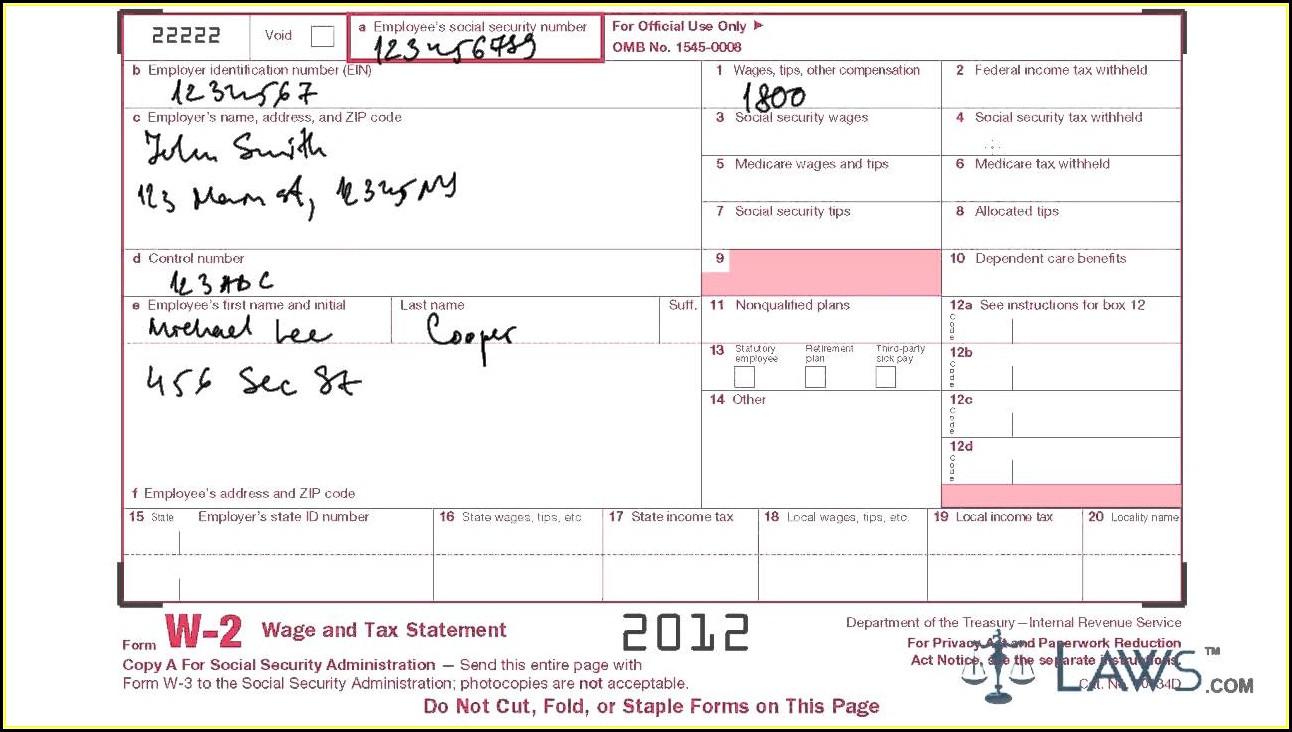 22222
Void
a Employee's social security number
123456789
For Official Use Only ►
OMB No. 1545-0008
b Employer identification number (EIN)
1234567
1 Wages, tips, other compensation
1800
2 Federal income tax withheld
c Employer's name, address, and ZIP code
John Smith
123 Main st, 12345 NY
3 Social security wages
4 Social security tax withheld
5 Medicare wages and tips
6 Medicare tax withheld
7 Social security tips
8 Allocated tips
d Control number
123 ABC
9
10 Dependent care benefits
e Employee's first name and initial
Michael Lee
Last name
Cooper
Suff.
456 Sec St
11 Nonqualified plans
12a See instructions for box 12
Code
13 Statutory employee
Retirement plan
Third-party sick pay
12b
Code
14 Other
12c
Code
12d
Code
f Employee's address and ZIP code
15 State Employer's state ID number
16 State wages, tips, etc.
17 State income tax
18 Local wages, tips, etc.
19 Local income tax
20 Locality name
Form W-2 Wage and Tax Statement
2012
Department of the Treasury—Internal Revenue Service
For Privacy Act and Paperwork Reduction
Act Notice, see the separate instructions.
Copy A For Social Security Administration — Send this entire page with
Form W-3 to the Social Security Administration; photocopies are not acceptable.
Cat. No.
Do Not Cut, Fold, or Staple Forms on This Page
LAWS™.COM